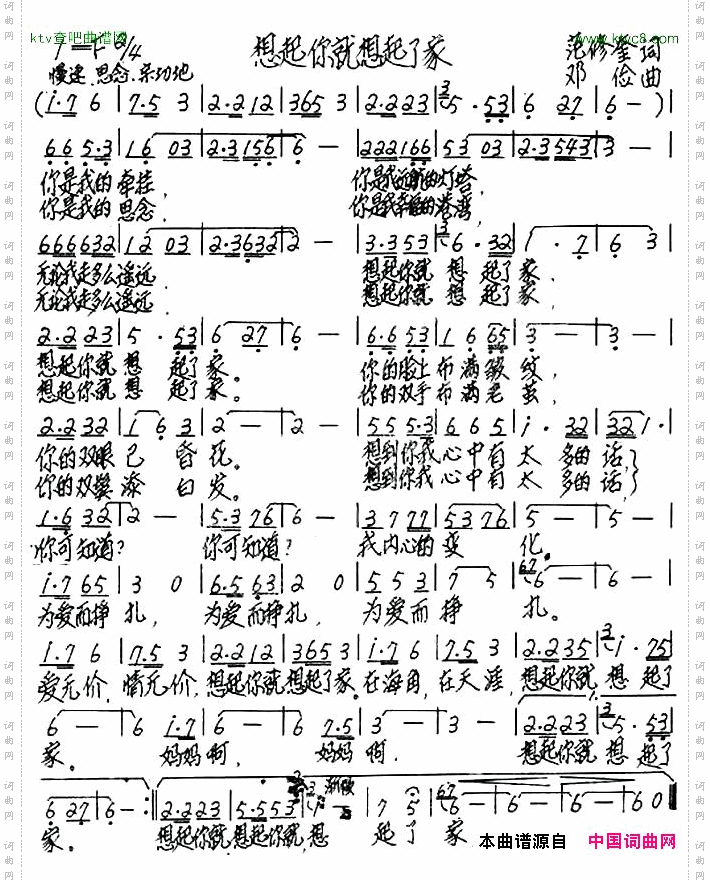 ktv查吧曲谱网 www.ktvc8.com
1=F 2/4 想起你就想起了家 范修奎 词
慢速 思念、亲切地 邓俭 曲
(i·7 6 | 7·5 3 | 2·2 1 2 | 365 3 | 2·2 23 | 5 · 53 | 6 27 | 6 — ) |
66 5·3 | 16 03 | 2·3 156 | 6 — | 222 166 | 53 03 | 2·3 543 | 3 — |
你是我的牵挂, 你是我远航的灯塔,
你是我的思念, 你是我幸福的港湾,
666632 | 12 03 | 2·3632 | 2 — | 3·3 53 | 6 · 32 | 1 · 7 | 6 3 |
无论我走多么遥远 想起你就 想 起了家,
无论我走多么遥远 想起你就 想 起了家,
2·2 23 | 5 · 53 | 6 27 | 6 — | 6·6 53 | 1 6 65 | 3 — | 3 — |
想起你就 想 起了家。 你的脸上布满皱纹,
想起你就 想 起了家。 你的双手布满老茧,
2·2 32 | 1 6 3 | 2 — | 2 — | 55 5·3 | 6 6 5 | i · 32 | 32 1· |
你的双眼已昏花。 想到你我心中有太 多的话,
你的双鬓添白发。 想到你我心中有太 多的话,
1·6 32 | 2 — | 5·3 76 | 6 — | 3 7 77 | 53 76 | 5 — | 5 — |
你可知道? 你可知道? 我内心的变 化。
i·7 65 | 3 0 | 6·5 63 | 2 0 | 5 5 3 | 7 5 | 6 — | 6 — |
为爱而挣扎, 为爱而挣扎, 为爱而挣 扎。
i·7 6 | 7·5 3 | 2·2 12 | 365 3 | i·7 6 | 7·5 3 | 2·2 35 | i · 75 |
爱无价,情无价,想起你就想起了家.在海角,在天涯,想起你就 想 起了
6 — | 6 i·7 | 6 — | 6 7·5 | 3 — | 3 — | 2·2 23 | 5 · 53 |
家。 妈妈啊, 妈妈啊, 想起你就 想 起了
6 27 | 6 — :‖ 2·2 23 | 5·5 53 | i · | 7 5 | 6 — | 6 — | 6 — | 60 ‖
渐慢
家。 想起你就,想起你就,想 起了 家
本曲谱源自 中国词曲网
词曲网